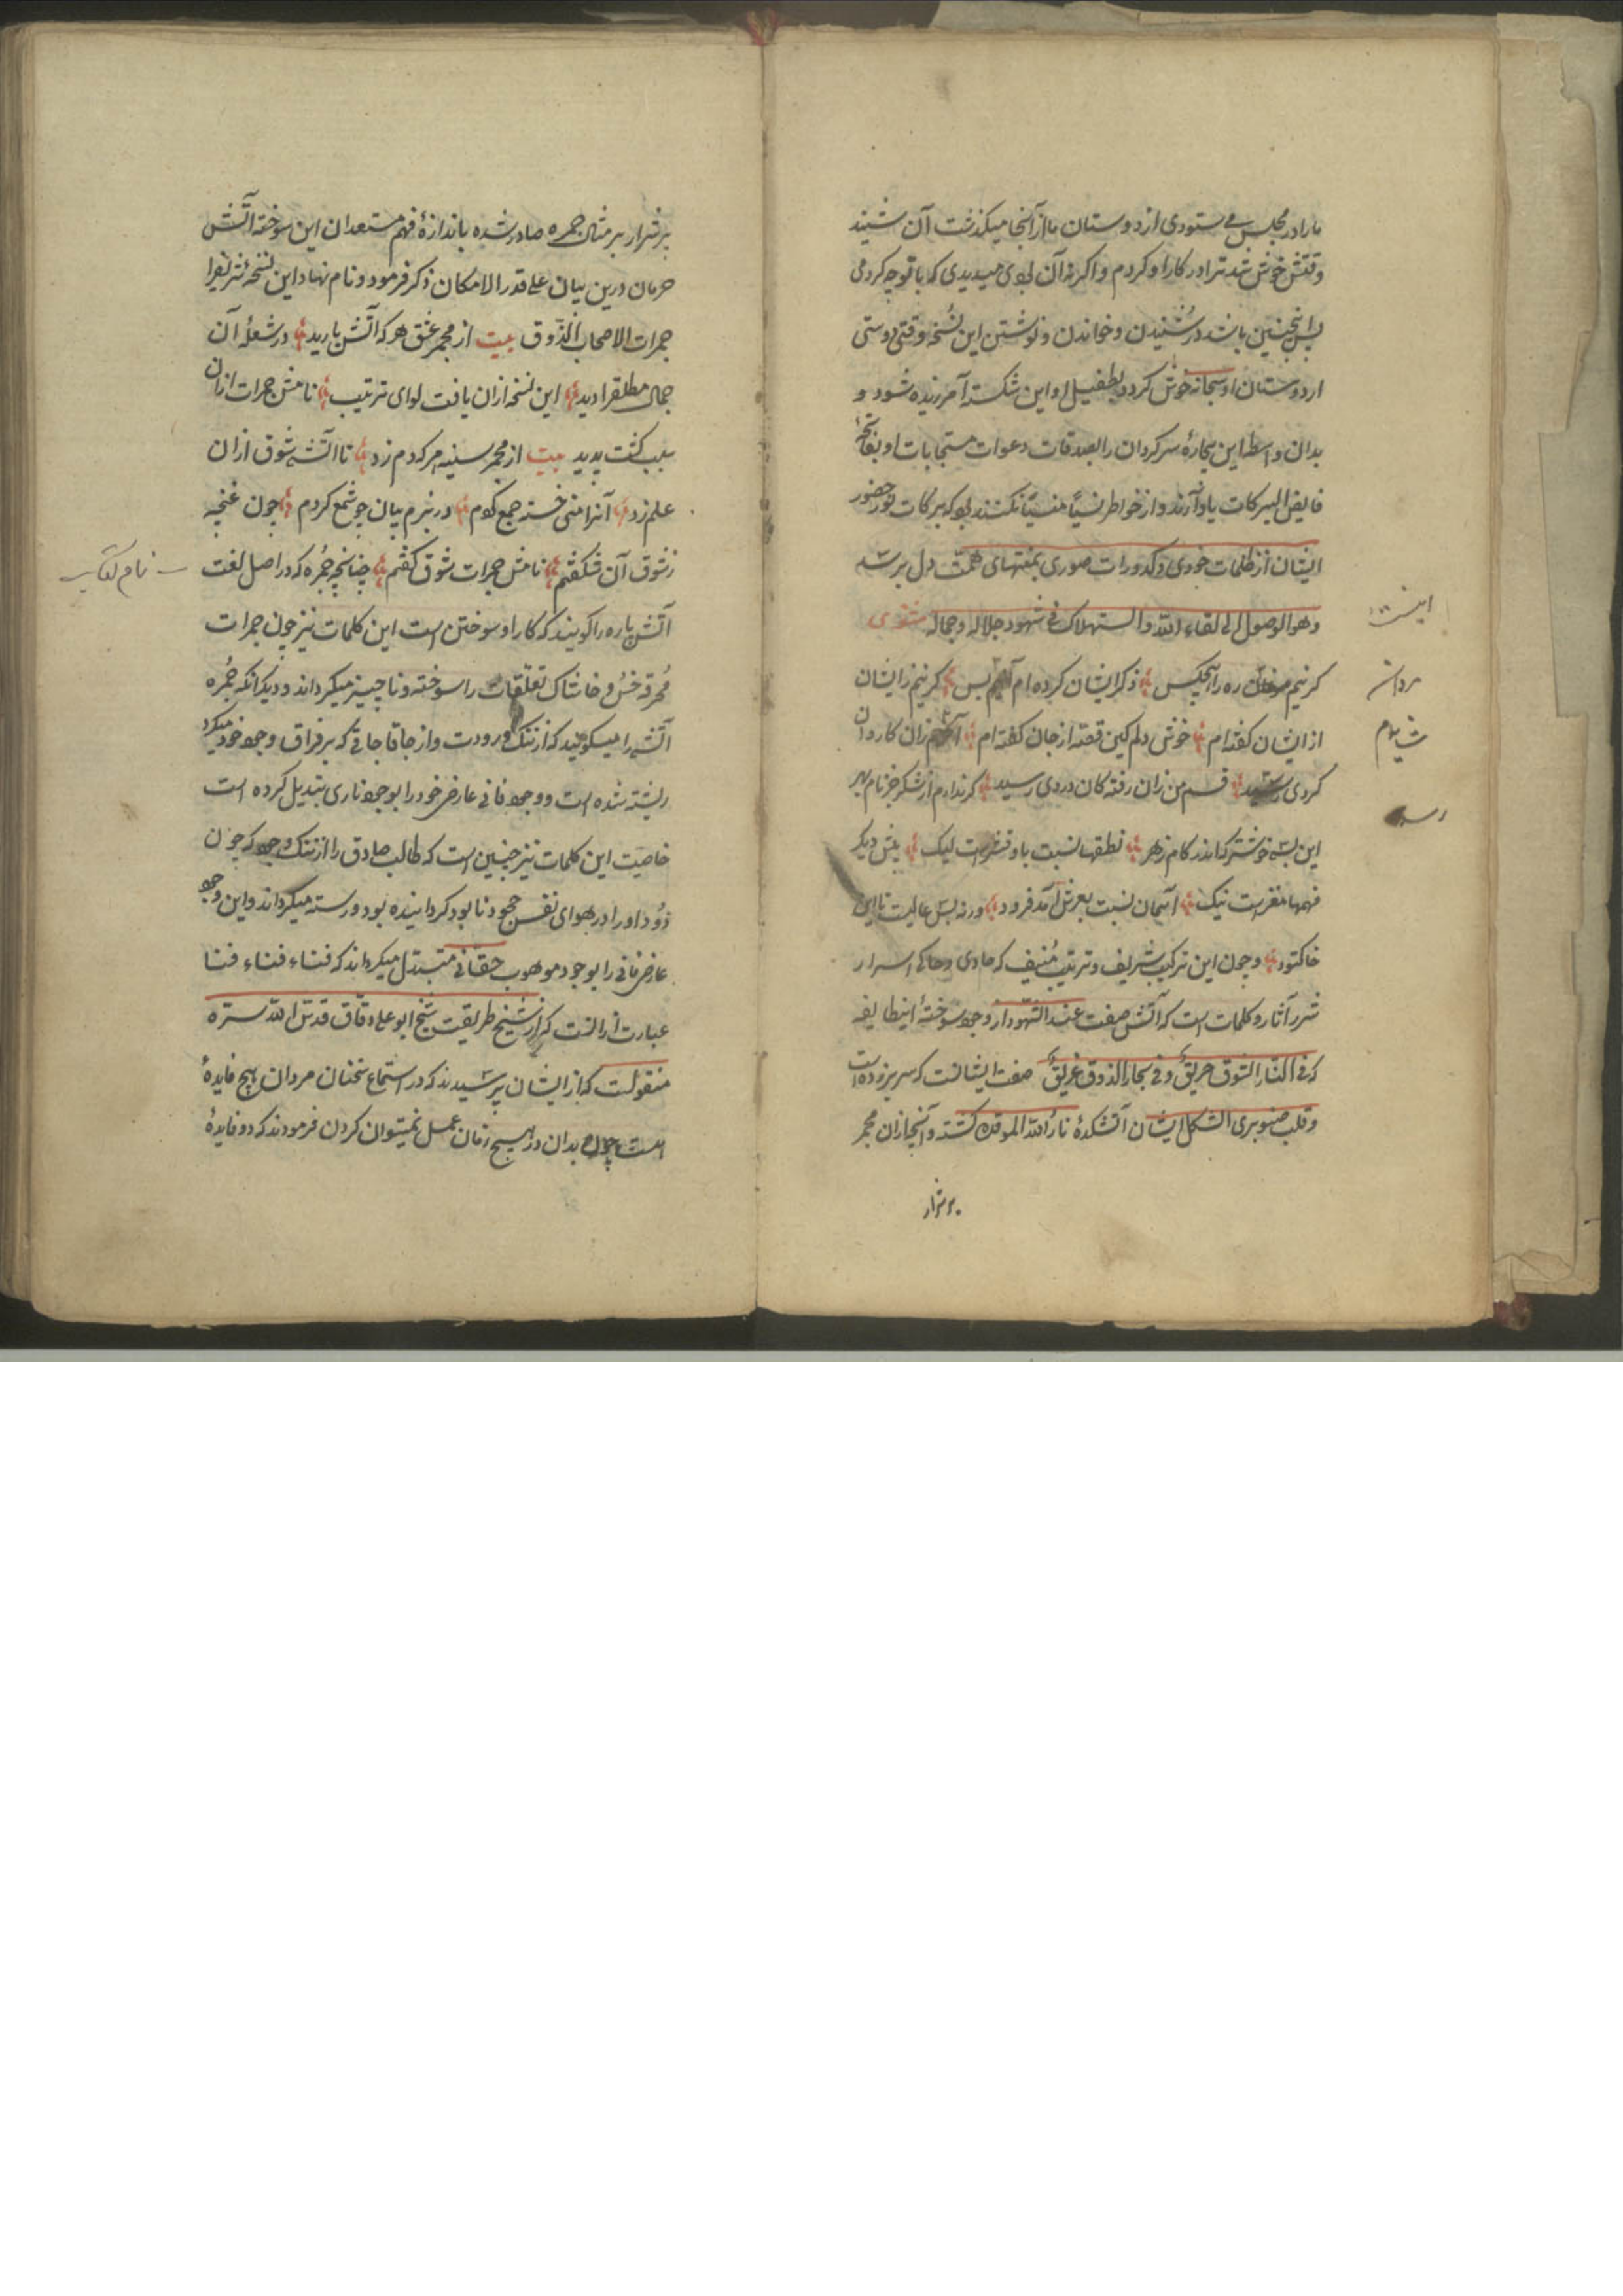 ما را در مجلسی می ستودی از دوستان ما از آنجا میکذشت آن شنید
وقتش خوش شد ترا در کار او کردم و اکر نه آن بودی میدیدی که با تو چه کردمی
پس اینچنین باشد در شنیدن و خواندن و نوشتن این نسخه وقتی دوستی
از دوستان او سبحانه خوش کردد بطفیل او این شکسته آمرزیده شود و
بدان واسطه این بیچارهٔ سرکردان را بصدقات دعوات مستجابات او بفاتحهٔ
فایض البرکات یاد آرند و از خواطر نسیًا منسیًا نکنند بو که ببرکات نور حضور
ایشان از ظلمات خودی و کدورات صوری بمنتهای همت دل برسد
وهو الوصول الی لقاء الله والاستهلاک فی شهود جلاله وجماله مثنوی
کر نیم مردان ره را هیچکس ذکر ایشان کرده ام اینم بس کر نیم زایشان
از ایشان کفته ام خوش دلم کین قصه از جان کفته ام آخرم زان کاروان
کردی رسید قسم من زان رفته کان دردی رسید کر ندارم از شکر جز نام بهر
این بسی خوشتر که اندر کام زهر نطقها نسبت باو قشرست لیک پیش دیکر
فهمها مغزست نیک آسمان نسبت بعرش آمد فرود ورنه بس عالیست تا این
خاکتود و چون این ترکیب شریف و ترتیب منیف که حاوی و حاکی اسرار
شرر آثار و کلمات است که آتش صفت عند الشهود از وجود سوختهٔ اینطایفه
که فی النار الشوق حریقٌ وفی بحار الذوق غریقٌ صفت ایشانست که سر بر زده است
و قلب صنوبری الشکل ایشان آتشکدهٔ نار الله الموقده کشته و آنچه از آن مجمر
بر شرار
مردان
رسید
بر شرار بر مثال جمره صادر شده باندازهٔ فهم مستعدان این سوخته آتش
حرمان درین بیان علی قدر الامکان ذکر فرمود و نام نهاد این نسخهٔ شریفرا
جمرات الاصحاب الذوق بیت از مجمر عشق هر که آتش بارید در شعلهٔ آن
جمال مطلقرا دید این نسخه از آن یافت لوای ترتیب نامش جمرات از آن
سبب کشت پدید بیت از مجمر سینه هر که دم زد تا آتش شوق از آن
علم زد آنرا منی خسته جمع کردم در بزم بیان چو شمع کردم چون غنچه
ز شوق آن شکفتم نامش جمرات شوق کفتم چنانچه جمره که در اصل لغت
نام کتاب
آتش پاره را کویند که کار او سوختن است این کلمات نیز چون جمرات
محرقه خس و خاشاک تعلقات را سوخته و ناچیز میکرداند و دیکر آنکه جمره
آتشی را میکویند که از ننک و رودت و از جا قا جاتی که بر فراق وجود خود میکرد
رسته شده است و وجود فانی عارضی خود را بوجود ناری تبدیل کرده است
خاصیت این کلمات نیز چنین است که طالب صادق را از ننک وجود که چون
دود او را در هوای نفس جحود نابود کردانیده بود رسته میکرداند و این وجود
عارضی فانی را بوجود موهوب حقانی متبدل میکرداند که فناء فناء فنا
عبارت از آنست که از شیخ طریقت شیخ ابو علی دقاق قدس الله سره
منقولست که از ایشان پرسیدند که در استماع سخنان مردان هیچ فایدهٔ
هست چون بدان در هیچ زمان عمل نمیتوان کردن فرمودند که دو فایدهٔ